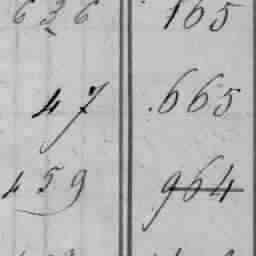 626 165
47 .665
459 964